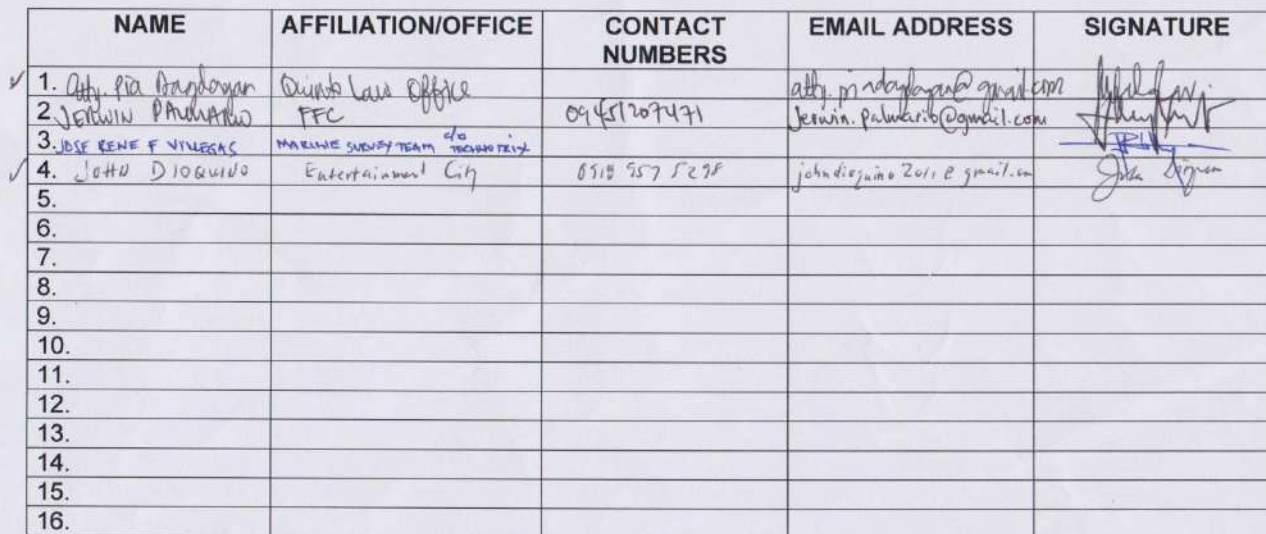 NAME AFFILIATION/OFFICE CONTACT NUMBERS EMAIL ADDRESS SIGNATURE
1. Atty. Pia Dagdagan Quinto Law Office
2. JERWIN PALMARIO FFC 09451207471 Jerwin.palmario@gmail.com
3. JOSE RENE F VILLEGAS MARINE SURVEY TEAM c/o TECHNOTRIX
4. JOHN DIOQUINO Entertainment City johndioquino2011@gmail.com
5.
6.
7.
8.
9.
10.
11.
12.
13.
14.
15.
16.